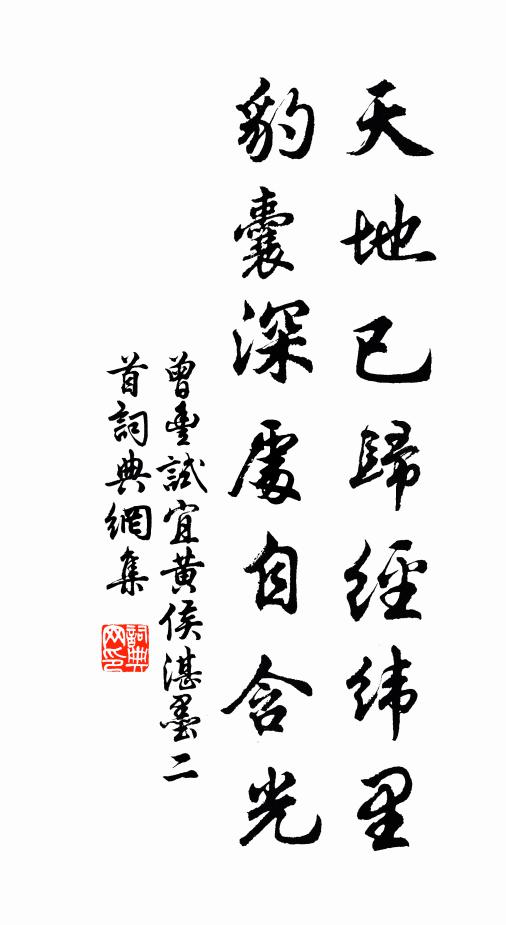 天地已歸經緯里
豹囊深處自含光
曾豐試宜黃侯湛墨二
首詞典網集
詞典
网印